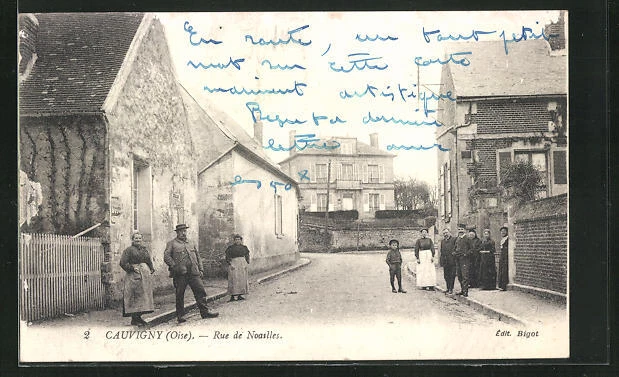 En route, un tout petit
mot sur cette carte
artistique
dernière
lettre
2 CAUVIGNY (Oise). — Rue de Noailles.
Édit. Bigot